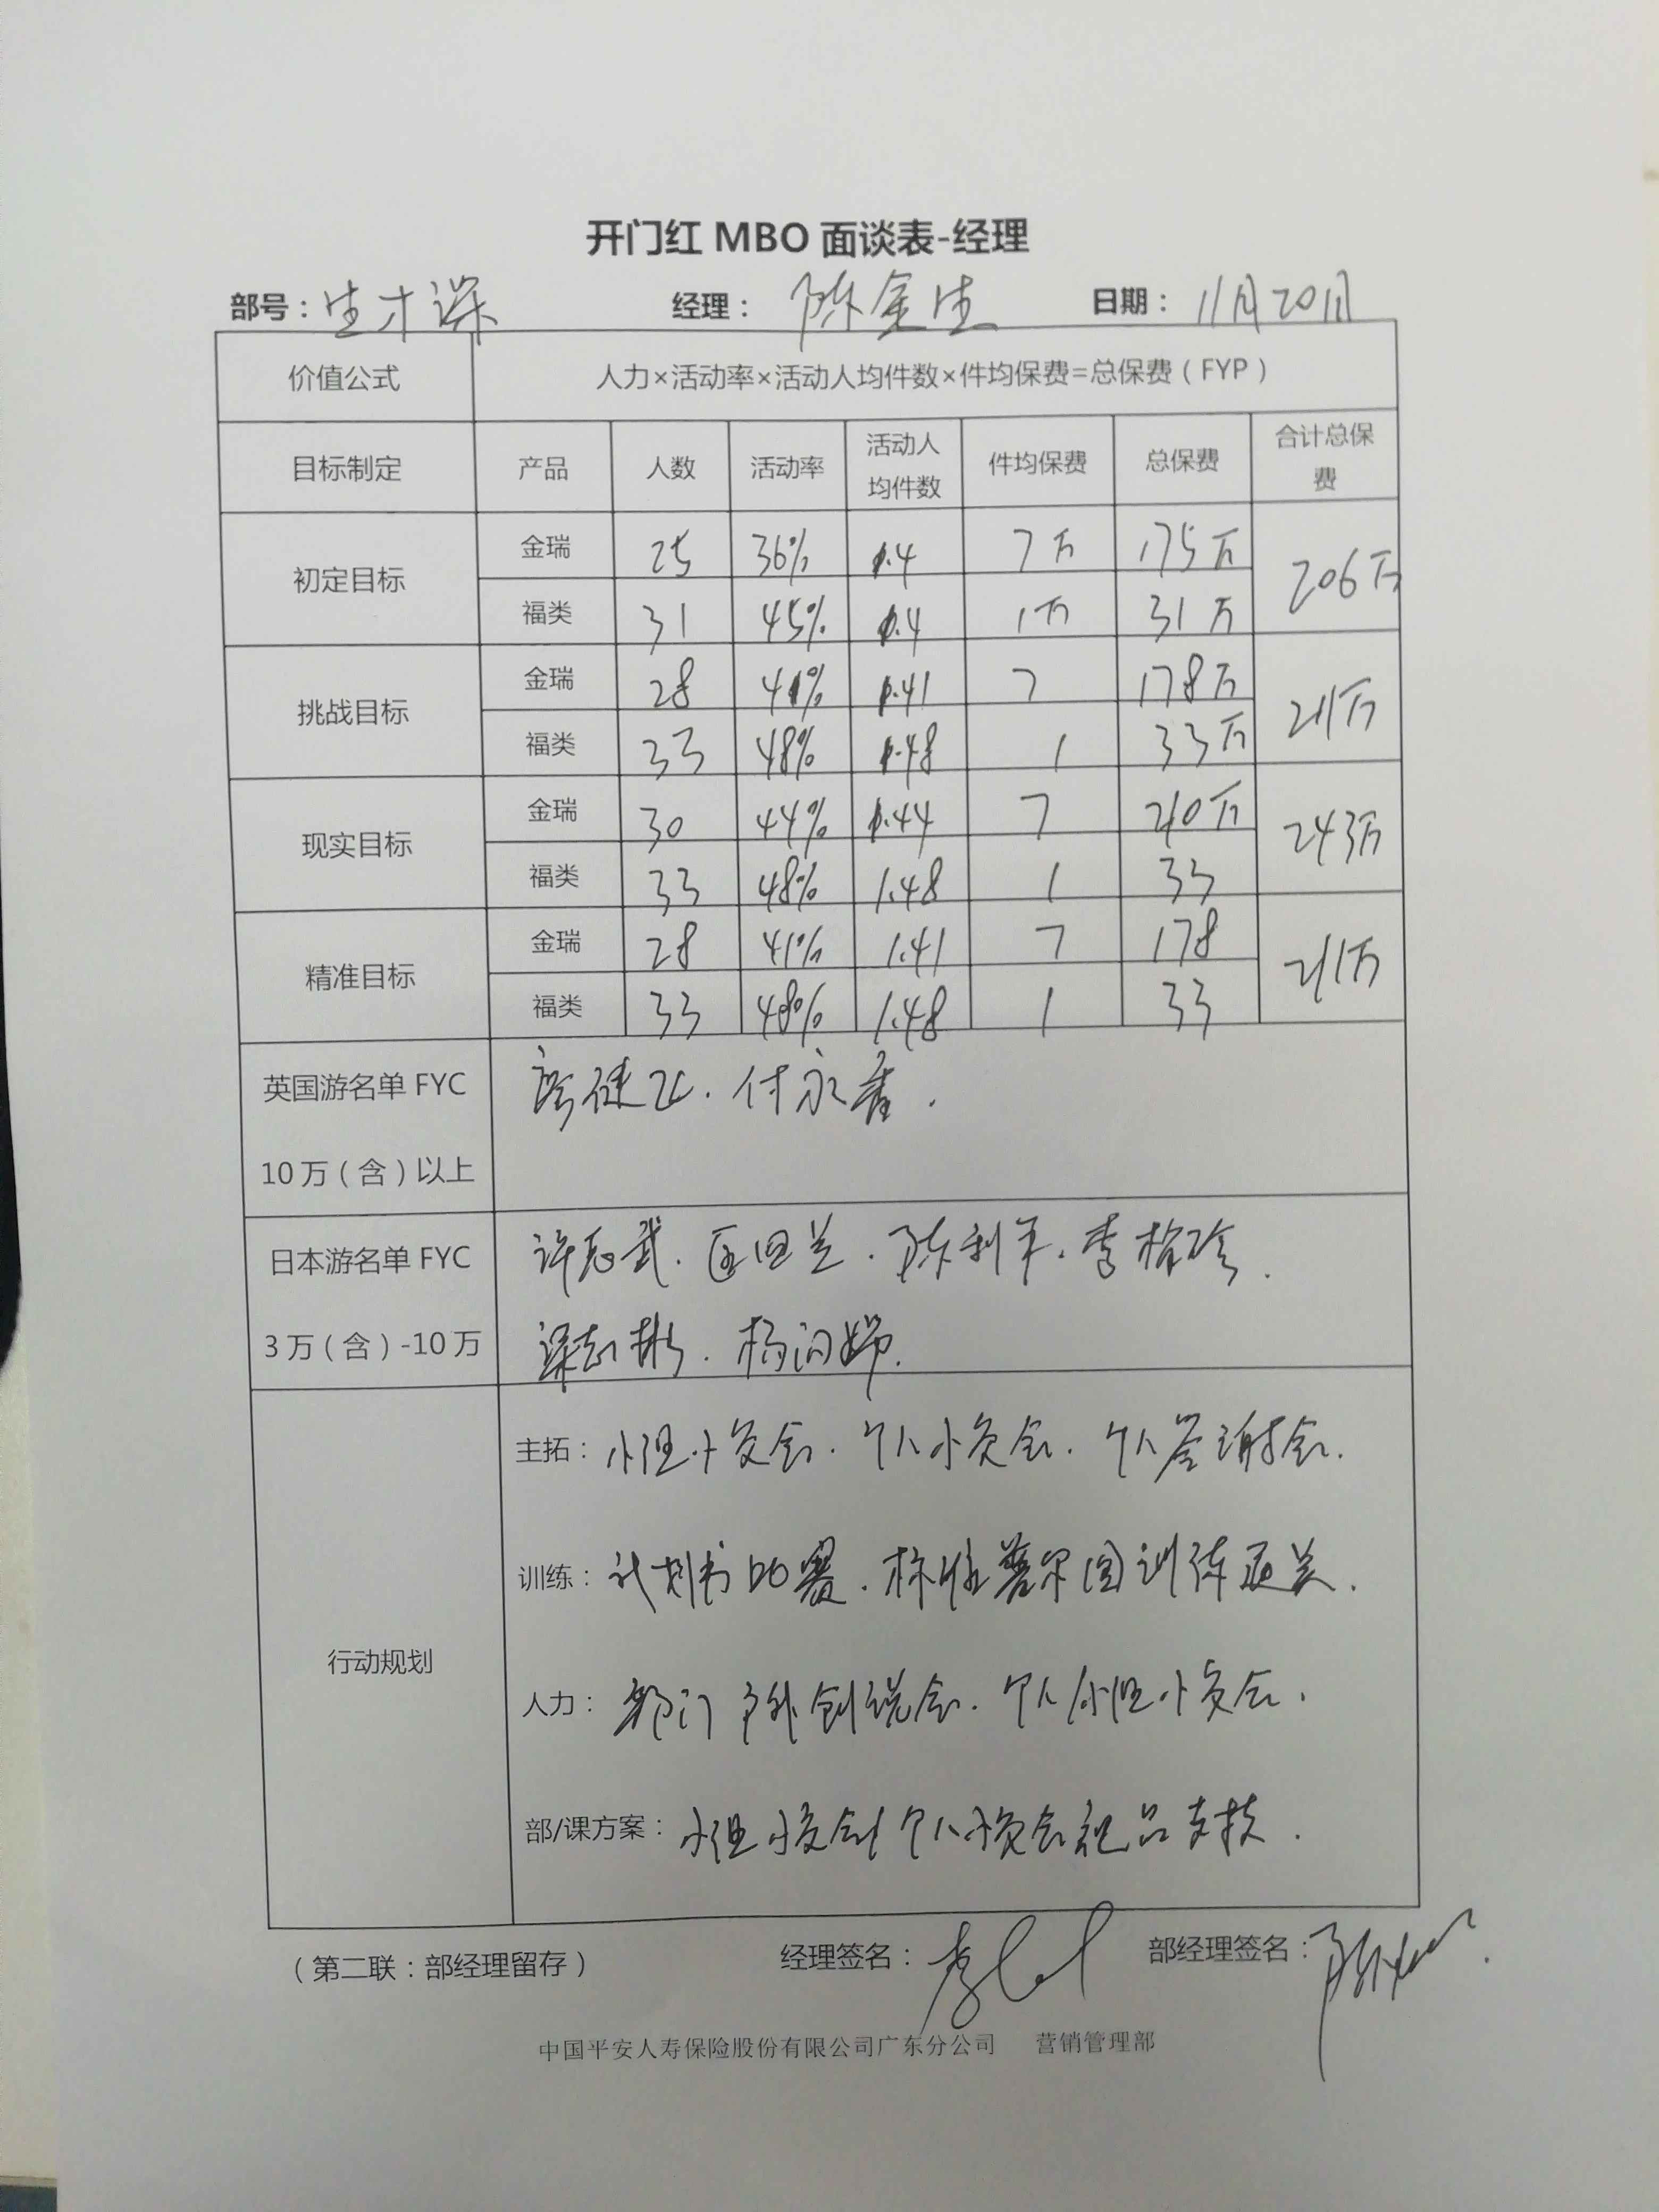 开门红 MBO 面谈表-经理
部号：生才课 经理：陈金生 日期：11月20日
价值公式 人力×活动率×活动人均件数×件均保费=总保费（FYP）
目标制定 产品 人数 活动率 活动人均件数 件均保费 总保费 合计总保费
初定目标 金瑞 25 36% 1.4 7万 175万 206万
福类 31 45% 1.4 1万 31万
挑战目标 金瑞 28 41% 1.41 7 178万 211万
福类 33 48% 1.48 1 33万
现实目标 金瑞 30 44% 1.44 7 210万 243万
福类 33 48% 1.48 1 33
精准目标 金瑞 28 41% 1.41 7 178 211万
福类 33 48% 1.48 1 33
英国游名单 FYC
10万（含）以上
付永香.
日本游名单 FYC
3万（含）-10万
许志武. 匡四兰. 陈利平. 李梅珍.
梁志彬. 杨润娣.
行动规划
主拓：小组小交会. 个人小交会. 个人答谢会.
训练：计划书比赛. 标准普尔图训练通关.
人力：部门户外创说会. 个人/小组小交会.
部/课方案：小组小交会/个人小交会礼品支持.
（第二联：部经理留存） 经理签名： 部经理签名：
中国平安人寿保险股份有限公司广东分公司 营销管理部